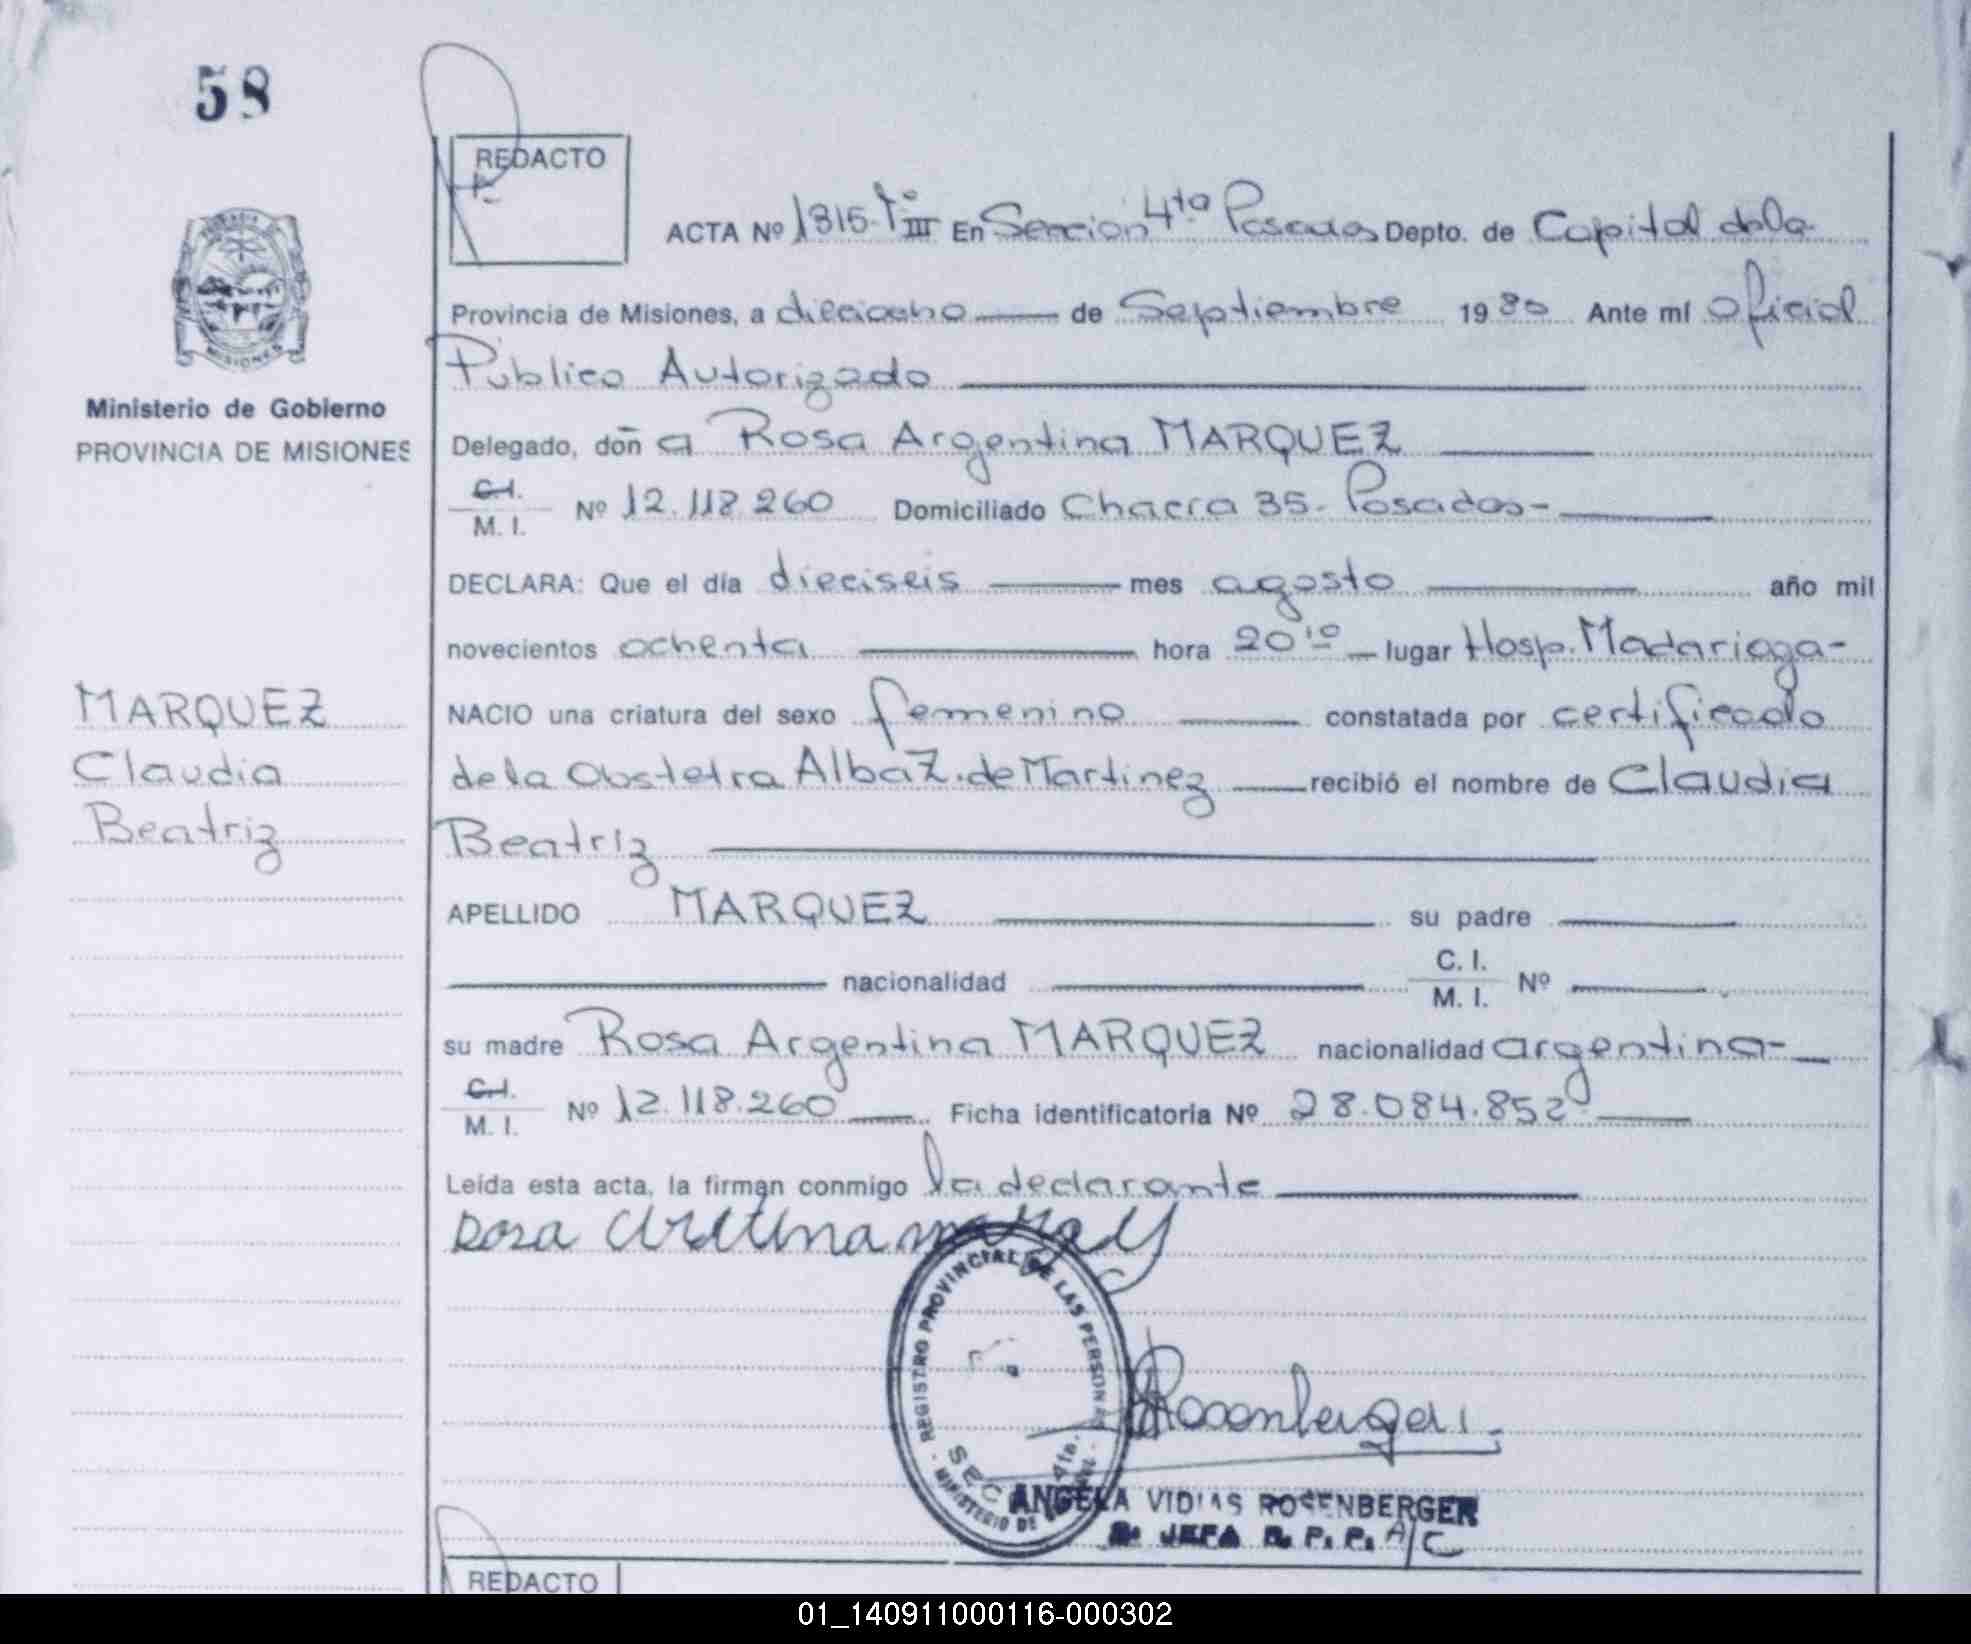 58
REDACTO
ACTA Nº 1315-Tº III En Sección 4ta Posadas Depto. de Capital de la
Provincia de Misiones, a dieciocho de Septiembre 1980 Ante mí Oficial
Público Autorizado
Ministerio de Gobierno
PROVINCIA DE MISIONES
Delegado, doña Rosa Argentina MARQUEZ
C.I.
M. I. Nº 12.118.260 Domiciliado Chacra 35- Posadas-
DECLARA: Que el día dieciseis mes agosto año mil
novecientos ochenta hora 20 10 lugar Hosp. Madariaga-
MARQUEZ
Claudia
Beatriz
NACIO una criatura del sexo femenino constatada por certificado
de la Obstetra Alba Z. de Martinez recibió el nombre de Claudia
Beatriz
APELLIDO MARQUEZ su padre
nacionalidad C. I.
M. I. Nº
su madre Rosa Argentina MARQUEZ nacionalidad argentina-
C.I.
M. I. Nº 12.118.260 Ficha identificatoria Nº 28.084.852
Leída esta acta, la firman conmigo la declarante
Rosa
REGISTRO PROVINCIAL DE LAS PERSONAS
SEC 4ta.
MINISTERIO DE
Rosenberger
ANGELA VIDIAS ROSENBERGER
JEFA R. P. P. A/C
REDACTO
01_140911000116-000302